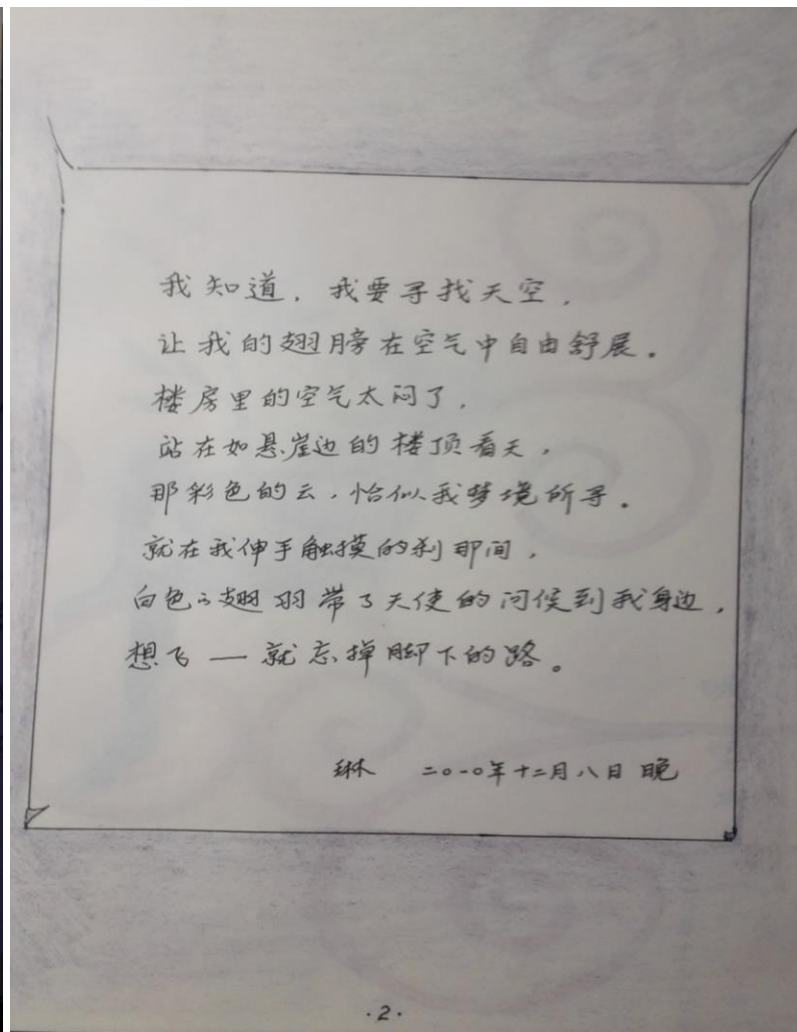 我知道，我要寻找天空，
让我的翅膀在空气中自由舒展。
楼房里的空气太闷了，
站在如悬崖边的楼顶看天，
那彩色的云，恰似我梦境所寻。
就在我伸手触摸的刹那间，
白色的翅羽带了天使的问候到我身边，
想飞——就忘掉脚下的路。
琳 二〇一〇年十二月八日 晚
·2·